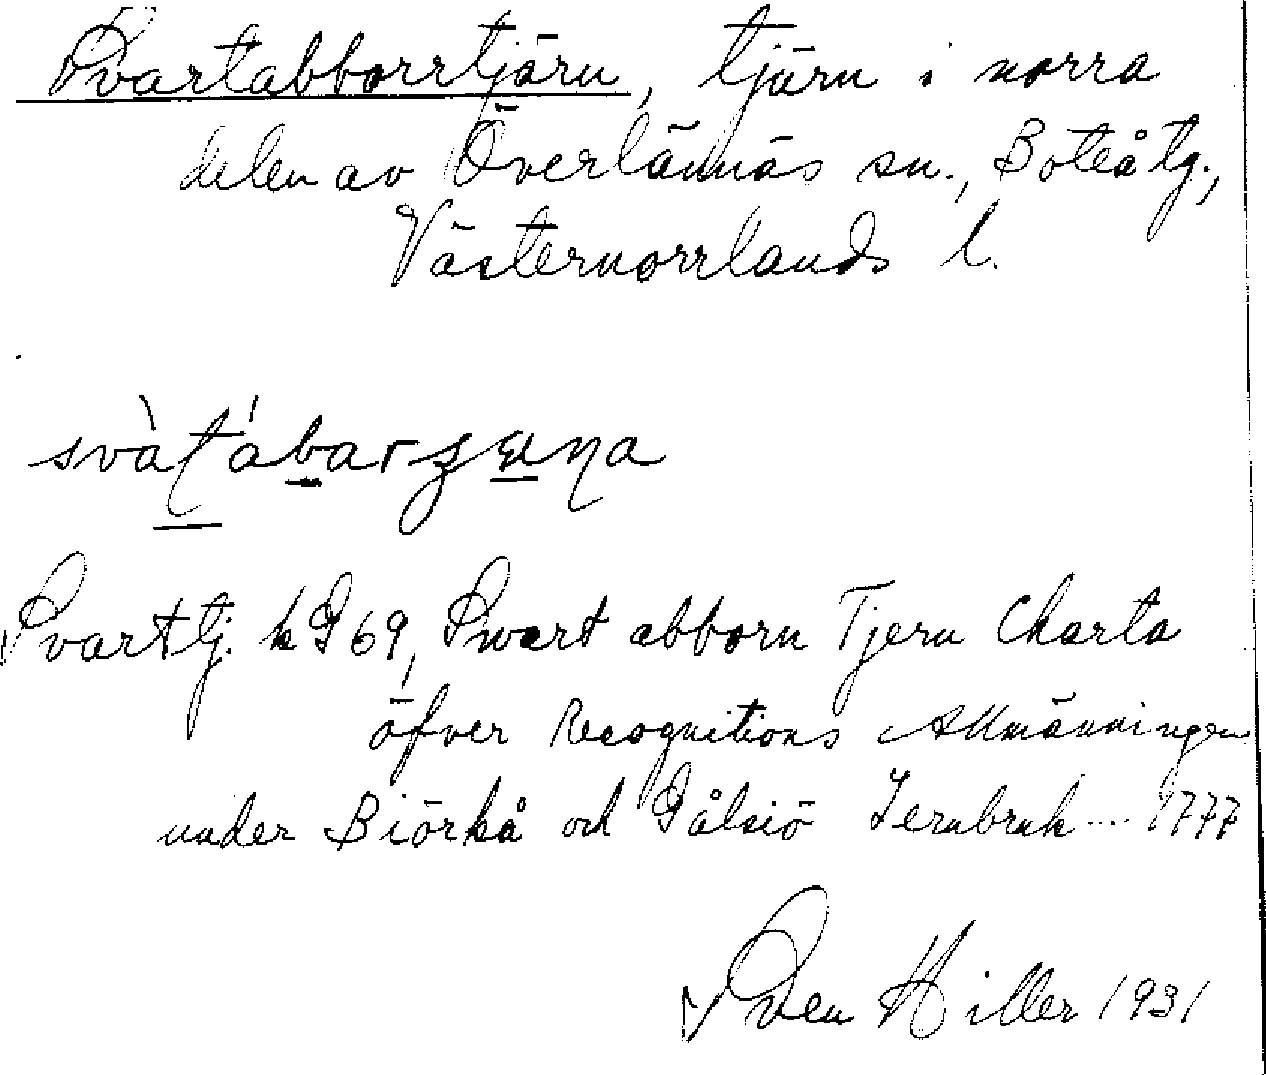 Svartabborrtjärn, tjärn i norra
delen av Överlännäs sn., Boteå tg.,
Västernorrlands l.
Svarttj. k G 69, Swart abborn Tjern Charta
öfver Recognitions Allmänningen
under Biörkå och Gålsiö Jernbruk... 1777
Sven Hiller 1931